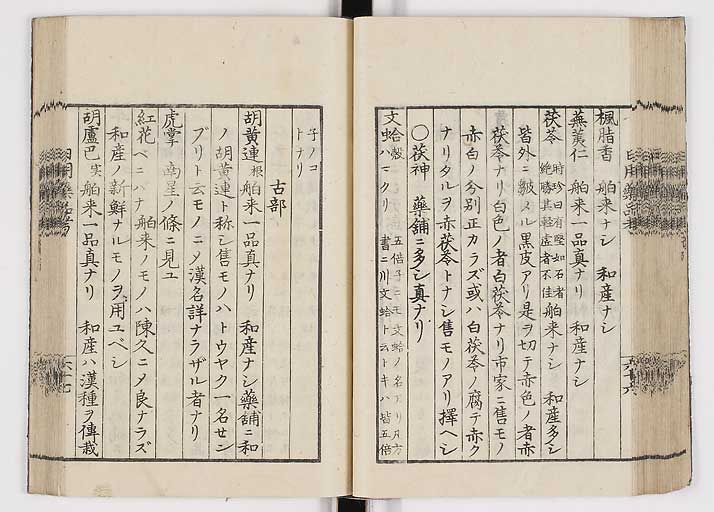 楓脂香 舶来ナシ 和産ナシ
蕪荑仁 舶来一品真ナリ 和産ナシ
茯苓 時珍曰有堅如石者絶勝其軽虚者不佳 舶来ナシ 和産多シ
皆外ニ皺メル黒皮アリ是ヲ切テ赤色ノ者赤
茯苓ナリ白色ノ者白茯苓ナリ市家ニ售モノ
赤白ノ分別正カラズ或ハ白茯苓ノ腐テ赤ク
ナリタルヲ赤茯苓トナシ售モノアリ擇ヘシ
〇茯神 藥舗ニ多シ真ナリ
文蛤殻 ハマクリ 五倍子ニモ文蛤ノ名アリ凡方書ニ川文蛤ト云トキハ皆五倍
子ノコトナリ
古部
胡黄連根 舶来一品真ナリ 和産ナシ藥舗ニ和
ノ胡黄連ト称シ售モノハトウヤク一名センブリト云モノニメ漢名詳ナラザル者ナリ
虎掌 南星ノ條ニ見ユ
紅花 ベニバナ 舶来ノモノハ陳久ニメ良ナラズ
和産ノ新鮮ナルモノヲ用ユベシ
胡盧巴実 舶来一品真ナリ 和産ハ漢種ヲ傳栽